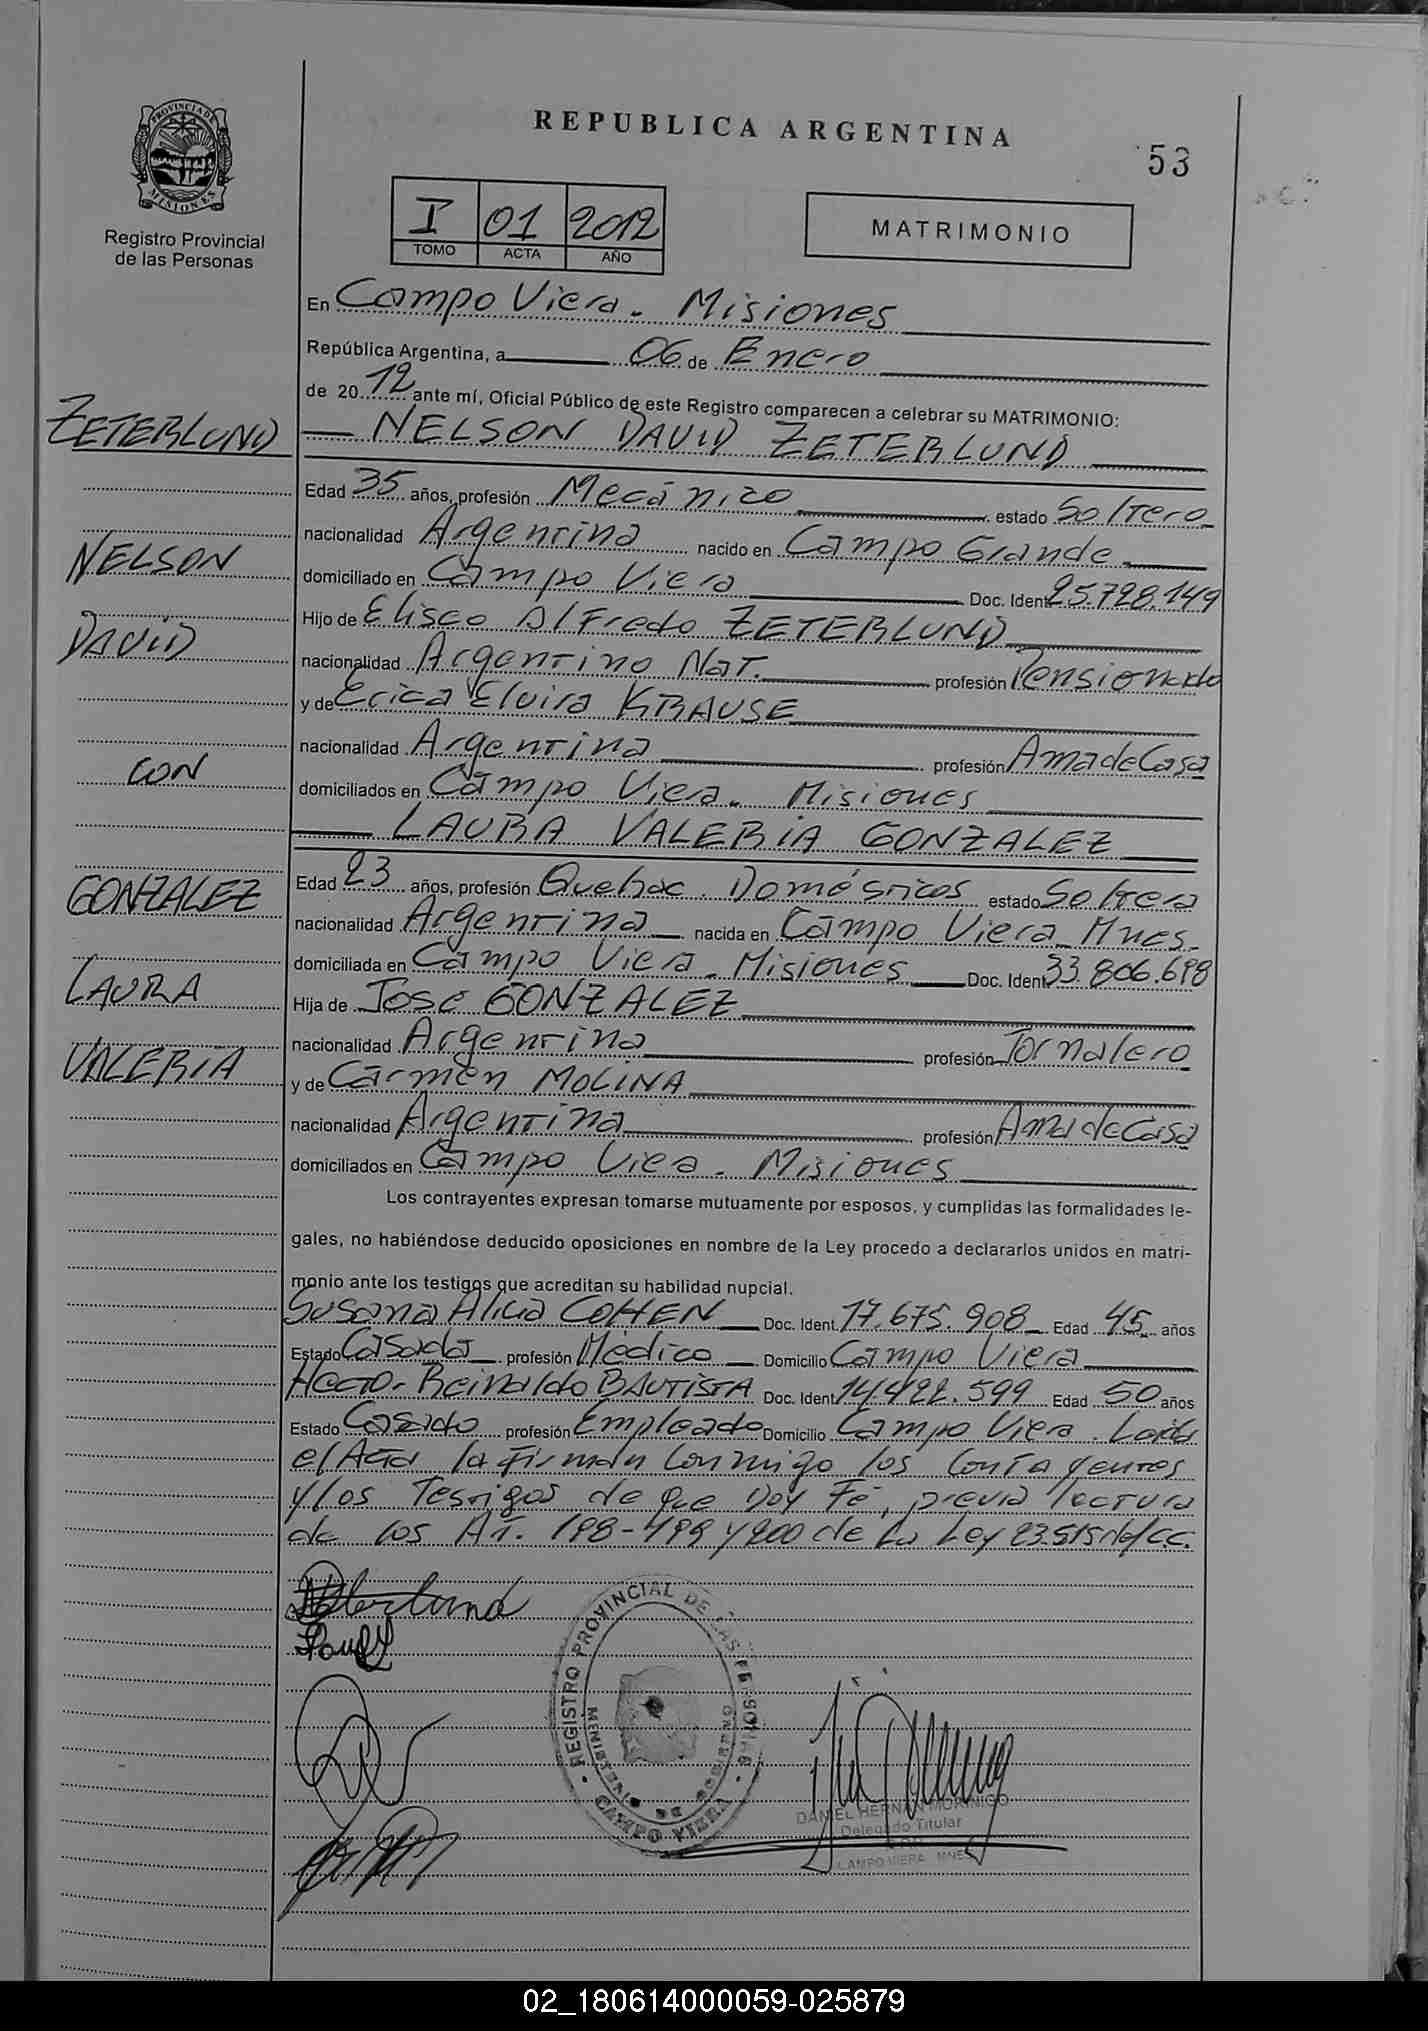 PROVINCIA DE
MISIONES
Registro Provincial
de las Personas
REPUBLICA ARGENTINA
53
I 01 2012
TOMO ACTA AÑO
MATRIMONIO
En Campo Viera. Misiones
República Argentina, a 06 de Enero
de 2012 ante mí, Oficial Público de este Registro comparecen a celebrar su MATRIMONIO:
ZETERLUND
NELSON DAVID ZETERLUND
Edad 35 años, profesión Mecánico estado Soltero
nacionalidad Argentina nacido en Campo Grande
NELSON
domiciliado en Campo Viera Doc. Ident 25.728.149
Hijo de Eliseo Alfredo ZETERLUND
DAVID
nacionalidad Argentino Nat. profesión Pensionado
y de Erica Elvira KRAUSE
nacionalidad Argentina profesión Ama de Casa
CON
domiciliados en Campo Viera. Misiones
LAURA VALERIA GONZALEZ
Edad 23 años, profesión Quehac. Domésticos estado Soltera
GONZALEZ
nacionalidad Argentina nacida en Campo Viera Mnes.
domiciliada en Campo Viera. Misiones Doc. Ident 33.806.698
LAURA
Hija de José GONZALEZ
nacionalidad Argentina profesión Jornalero
VALERIA
y de Carmen MOLINA
nacionalidad Argentina profesión Ama de Casa
domiciliados en Campo Viera. Misiones
Los contrayentes expresan tomarse mutuamente por esposos, y cumplidas las formalidades le-
gales, no habiéndose deducido oposiciones en nombre de la Ley procedo a declararlos unidos en matri-
monio ante los testigos que acreditan su habilidad nupcial.
Susana Alicia COHEN Doc. Ident. 17.675.908 Edad 45 años
Estado Casada profesión Médico Domicilio Campo Viera
Hector Reinaldo BAUTISTA Doc. Ident 14.422.599 Edad 50 años
Estado Casado profesión Empleado Domicilio Campo Viera. Leida
el Acta la firman conmigo los Contrayentes
y los Testigos de que Doy Fé, previa lectura
de los Art. 198-199 y 200 de la Ley 23.515 del C.C.
Zeterlund
REGISTRO PROVINCIAL DE LAS PERSONAS
MINISTERIO DE GOBIERNO
CAMPO VIERA
DANIEL HERNAN MORINIGO
Delegado Titular
CAMPO VIERA MNES
02_180614000059-025879